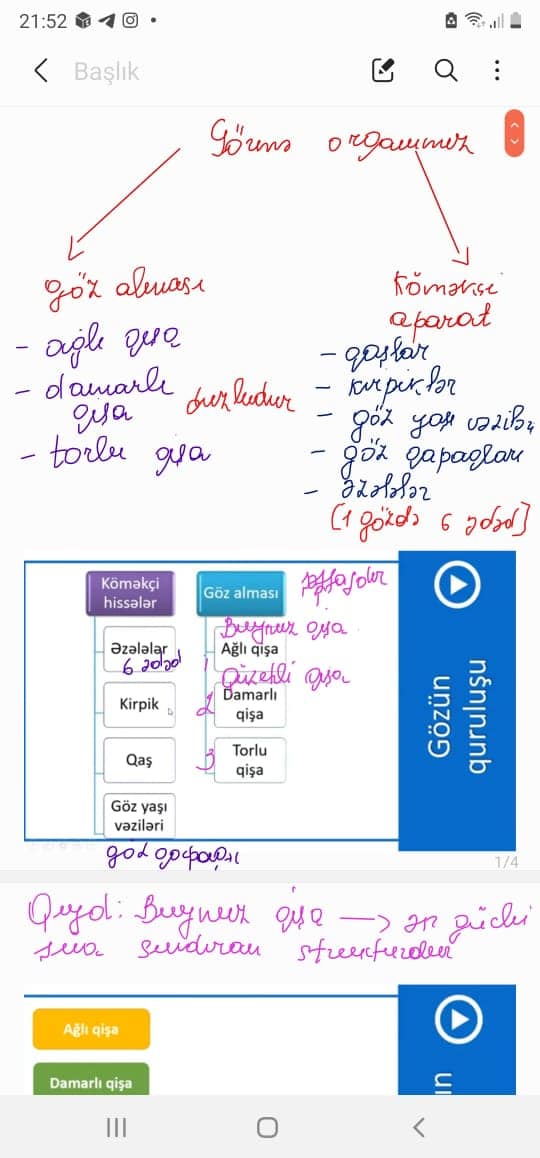 21:52
Başlık
Görmə orqanımız
göz alması
- ağlı qişa
- damarlı
qişa
- torlu qişa
Köməkçi
aparat
- qaşlar
- kirpiklər
- göz yaşı vəziləri
- göz qapaqları
- əzələlər
(1 gözdə 6 ədəd)
Köməkçi
hissələr
Əzələlər
6 ədəd
Kirpik
Qaş
Göz yaşı
vəziləri
göz qapaqları
Göz alması
şəffafdır
Buynuz qişa
1 Ağlı qişa
Qüzehli qişa
2 Damarlı
qişa
3 Torlu
qişa
Gözün
quruluşu
1/4
Qeyd: Buynuz qişa → ən güclü
şüa sındıran strukturdur
Ağlı qişa
Damarlı qişa